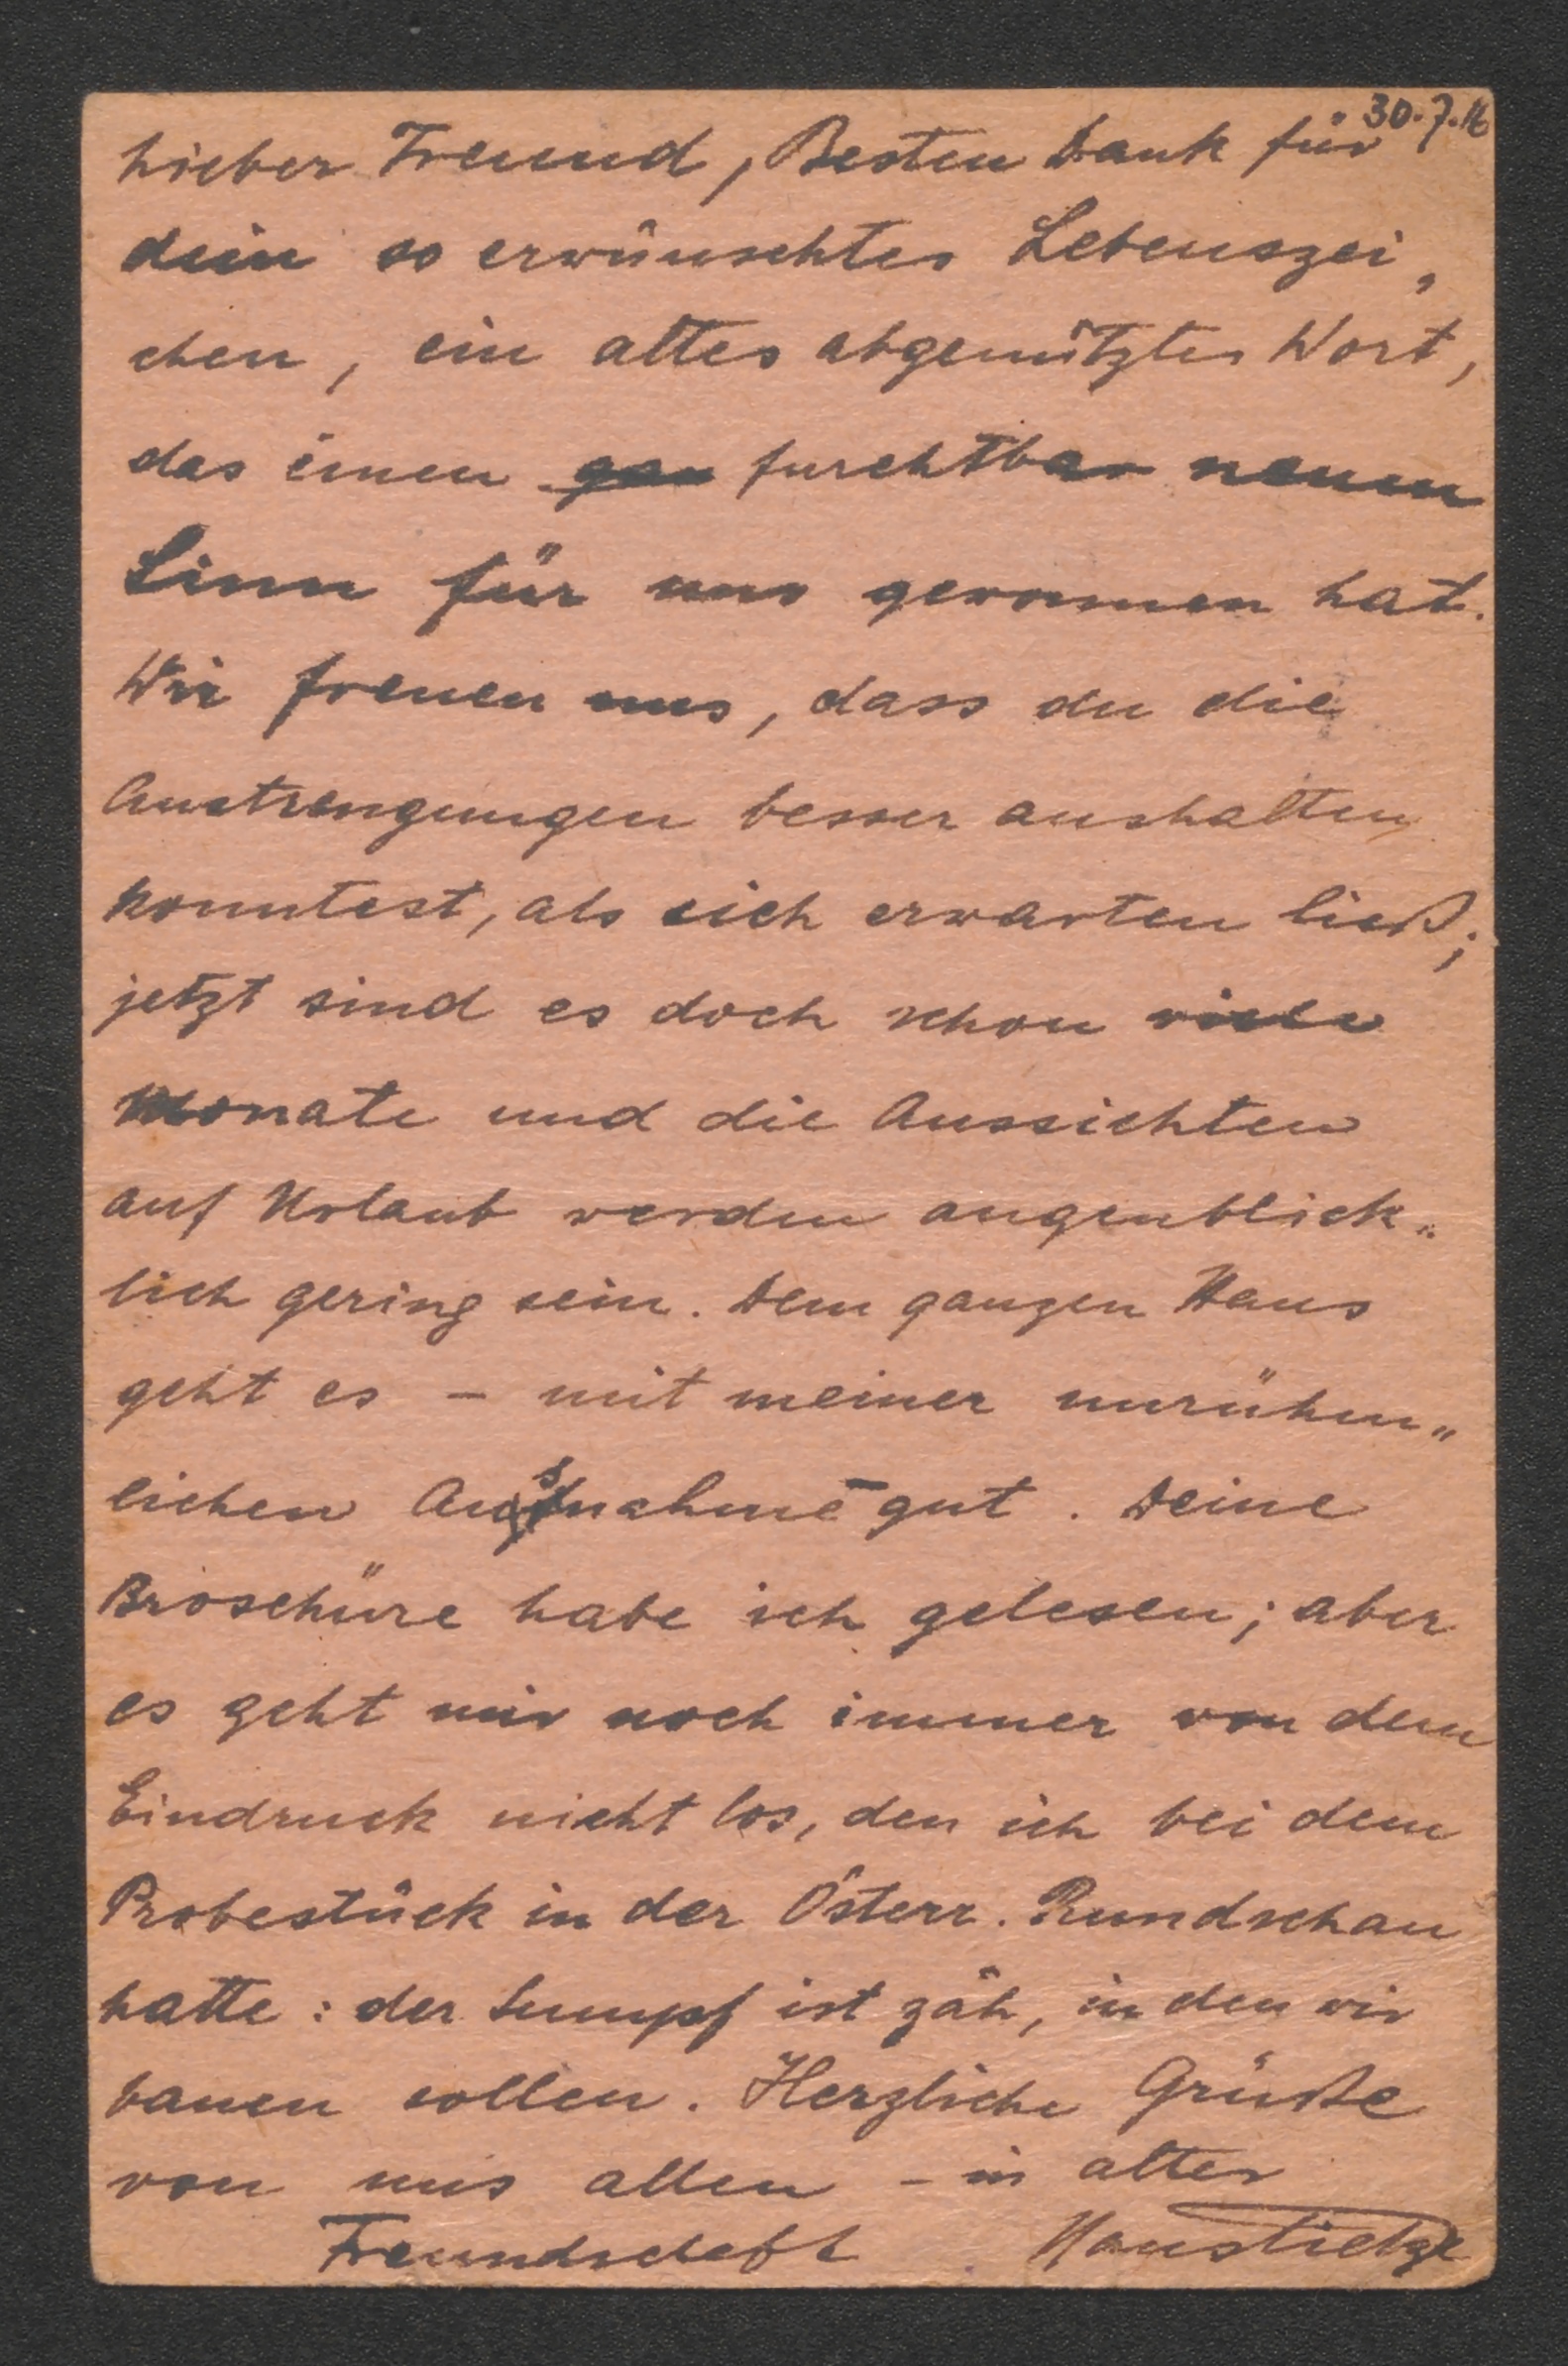 30.7.16
Lieber Freund, Besten Dank für
dein so erwünschtes Lebenszei„
chen, ein altes abgenütztes Wort,
das einen gan furchtbar neuen
Sinn für uns gewonnen hat.
Wir freuen uns, dass du die
Anstrengungen besser aushalten
konntest, als sich erwarten ließ;
jetzt sind es doch schon viele
Monate und die Aussichten
auf Urlaub werden augenblick„
lich gering sein. Dem ganzen Haus
geht es – mit meiner unrühm„
lichen Ausnahme – gut. Deine
Broschüre habe ich gelesen; aber
es geht mir noch immer von dem
Eindruck nicht los, den ich bei dem
Probestück in der Österr. Rundschau
hatte: der Sumpf ist zäh, in den wir
bauen sollen. Herzliche Grüße
von uns allen – in alter
Freundschaft Hans Tietze